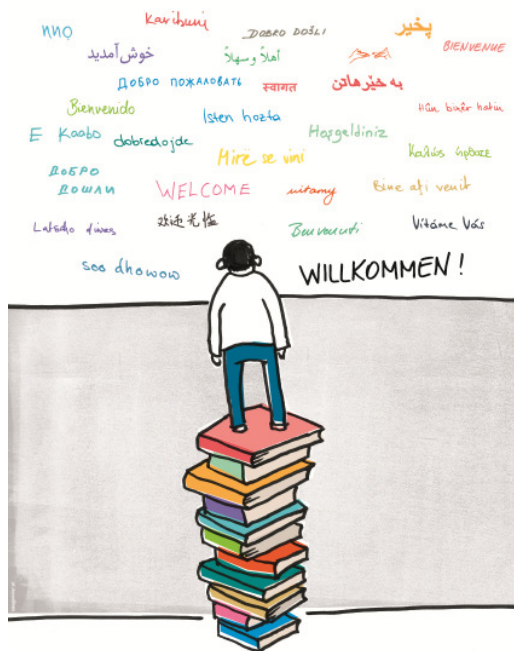 Karibuni
DOBRO DOŠLI
پخیر
BIENVENUE
خوش آمدید
أهلاً وسهلاً
ДОБРО ПОЖАЛОВАТЬ
स्वागत
به خێرهاتن
Bienvenido
Isten hozta
Hûn bixêr hatin
E Kaabo
dobredojde
Hoşgeldiniz
Mirë se vini
ДОБРО
ДОШЛИ
WELCOME
witamy
Bine aţi venit
Latscho diwes
欢迎光临
Benvenuti
Vítáme Vás
soo dhowow
WILLKOMMEN!